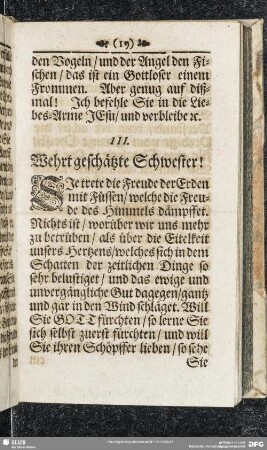 (19)
den Vogeln / und der Angel den Fi-
schen / das ist ein Gottloser einem
Frommen. Aber genug auf diß-
mal! Ich befehle Sie in die Lie-
bes-Arme JEsu / und verbleibe ꝛc.
III.
Wehrt geschätzte Schwester!
SJe trete die Freude der Erden
mit Füssen / welche die Freu-
de des Himmels dämpffet.
Nichts ist / worüber wir uns mehr
zu betrüben / als über die Eitelkeit
unsers Hertzens / welches sich in dem
Schatten der zeitlichen Dinge so
sehr belustiget / und das ewige und
unvergängliche Gut dagegen / gantz
und gar in den Wind schläget. Will
Sie GOTT fürchten / so lerne Sie
sich selbst zuerst fürchten / und will
Sie ihren Schöpffer lieben / so sehe
Sie
SLUB
DFG